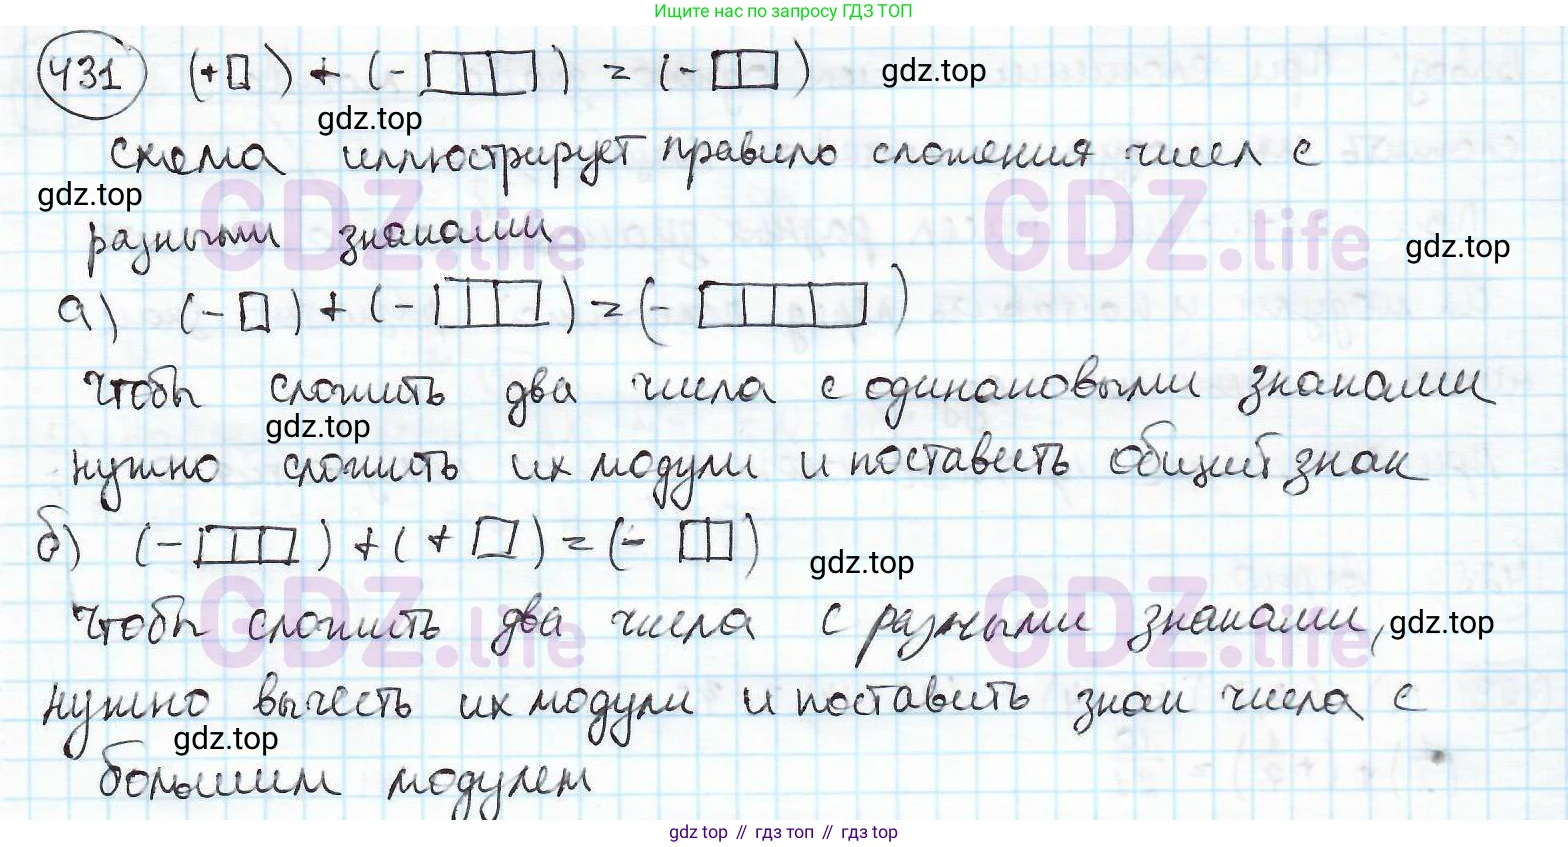 Ищите нас по запросу ГДЗ ТОП
431 (+□) + (-□□□) = (-□□) gdz.top
gdz.top
схема иллюстрирует правило сложения чисел с
gdz.top
GDZ.life GDZ.life
разными знаками
gdz.top
а) (-□) + (-□□□) = (-□□□□)
чтобы сложить два числа с одинаковыми знаками
gdz.top
нужно сложить их модули и поставить общий знак
б) (-□□□) + (+□) = (-□□)
gdz.top
GDZ.life GDZ.life
чтобы сложить два числа с разными знаками, gdz.top
нужно вычесть их модули и поставить знак числа с
gdz.top
большим модулем
gdz top // гдз топ // гдз top